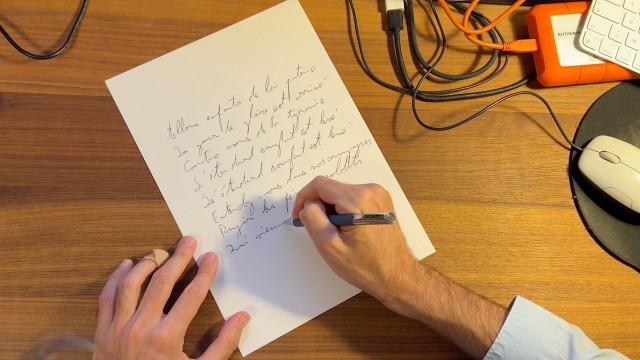 Allons enfants de la patrie
Le jour de gloire est arrivé
Contre nous de la tyrannie
L'étendard sanglant est levé.
L'étendard sanglant est levé.
Entendez vous dans nos campagnes
Rugir ces soldats
Qui vienn